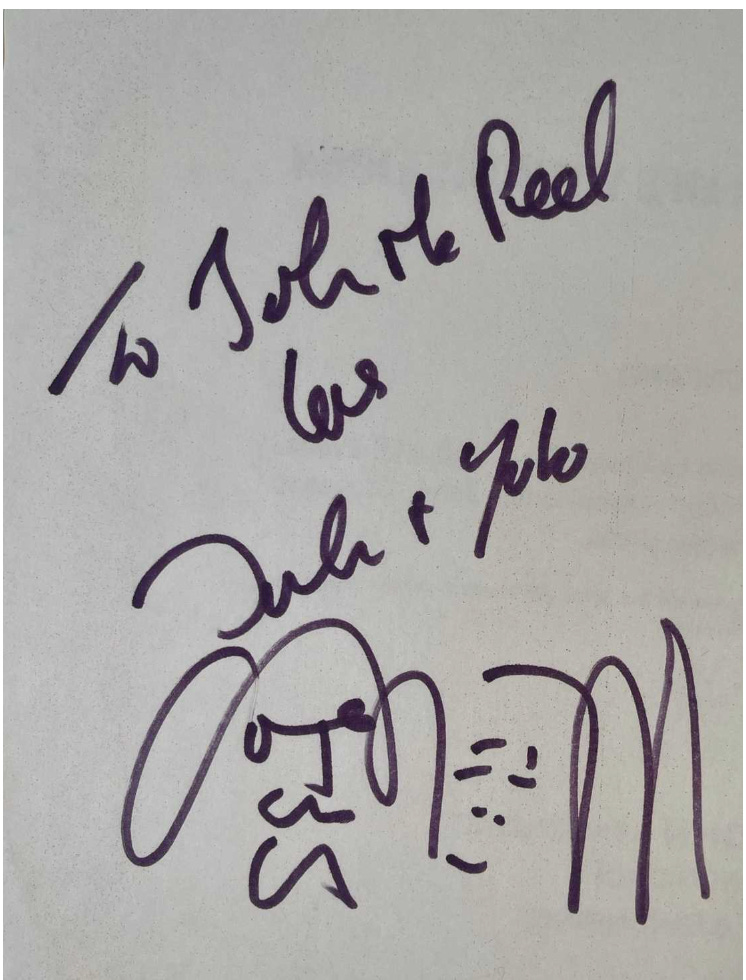 To John Mc Peel
love
John + Yoko